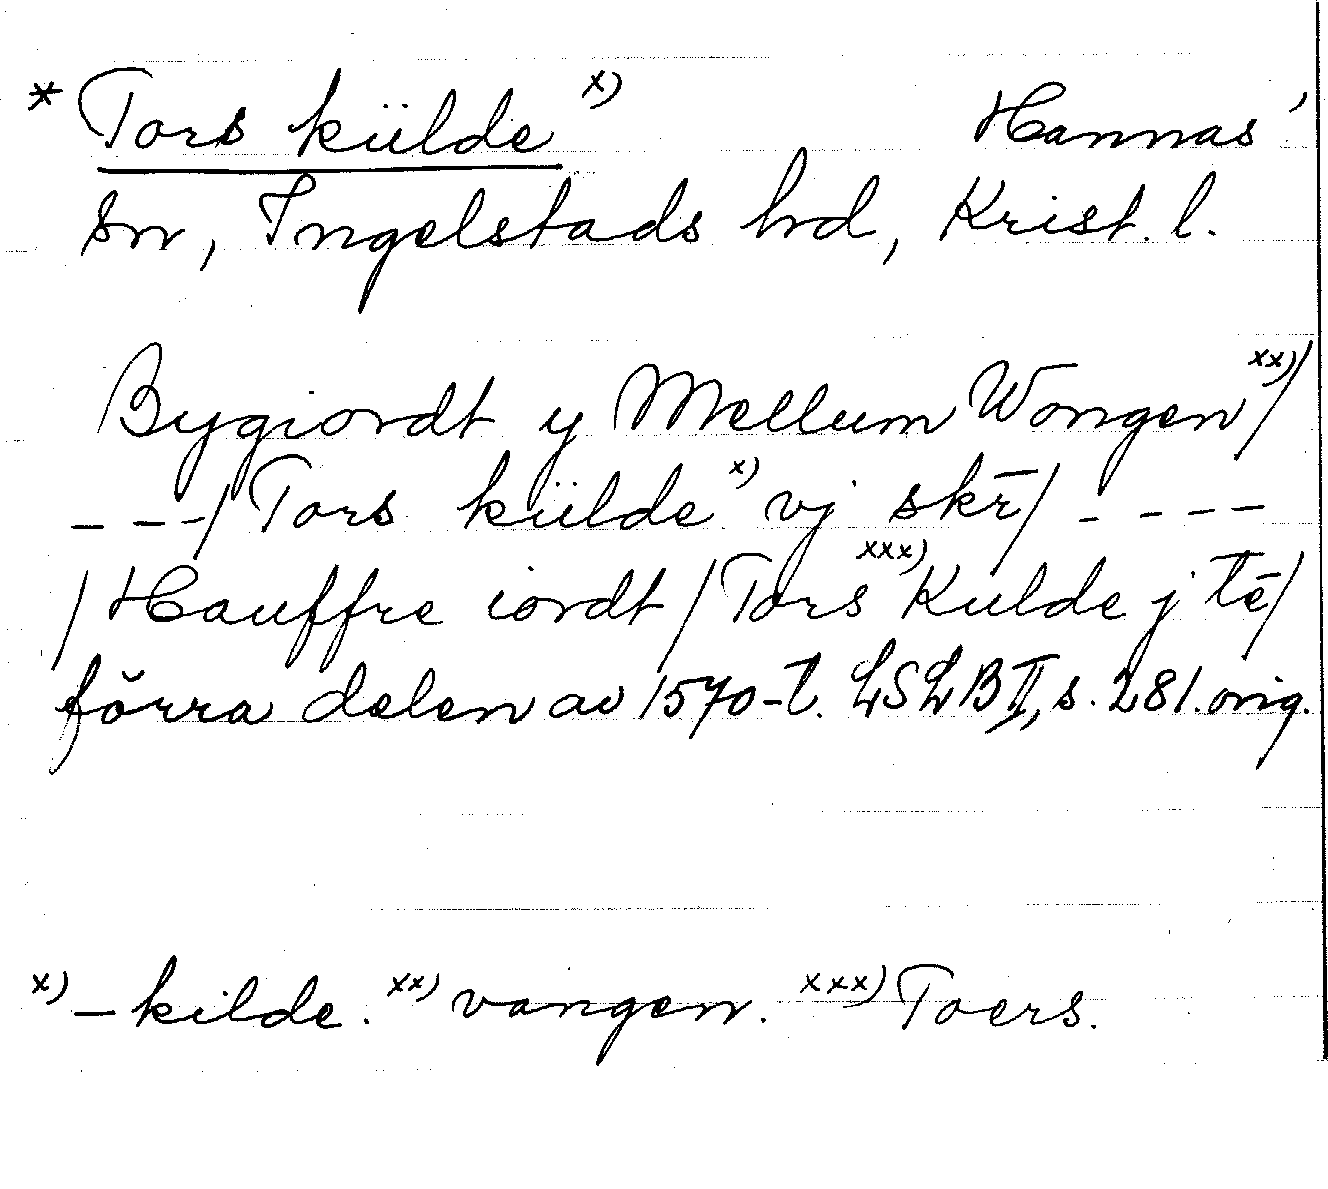 * Tors külde x) Hannas'
sn, Ingelstads hd, Krist. l.
Bygiordt y Mellum Wongen xx)/
- - -/ Tors külde x) vj skr̄/ - - - -
/ Hauffre iordt / Tors xxx) Kulde j tē/
förra delen av 1570-t. LSLB II, s. 281. orig.
x) -kilde. xx) vangen. xxx) Toers.